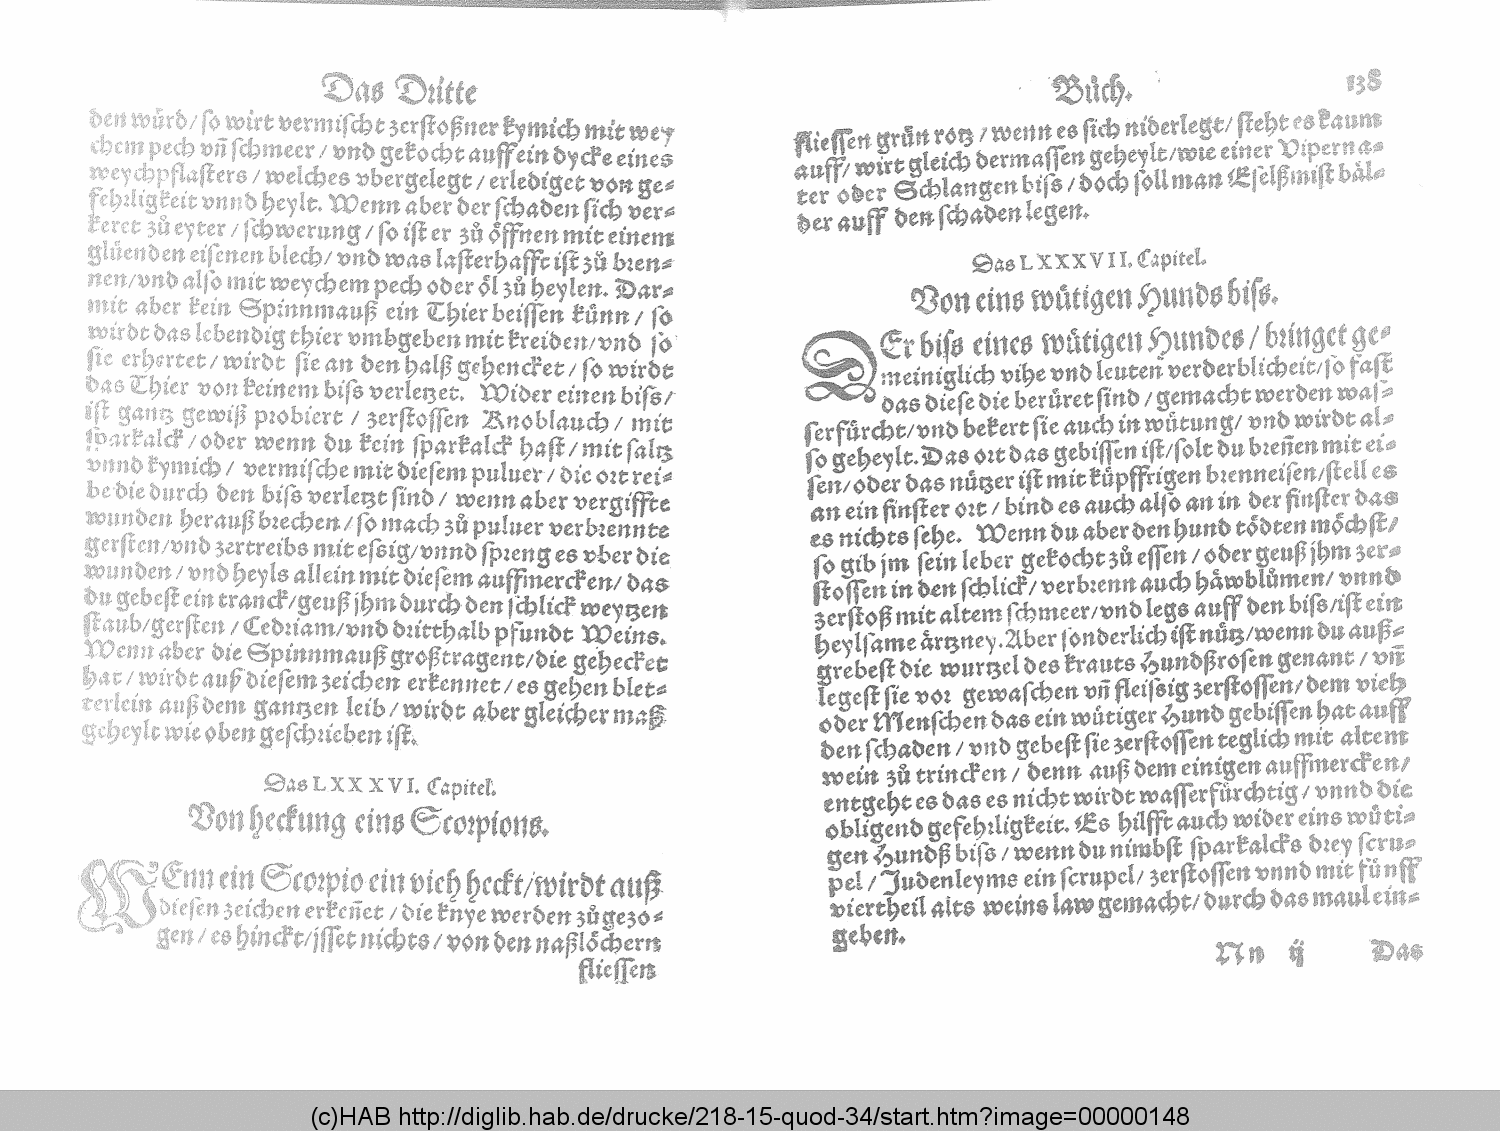 Das Dritte
den würd/ so wirt vermischt zerstoßner kymich mit wey
chem pech vñ schmeer / vnd gekocht auff ein dycke eines
weychpflasters / welches vbergelegt / erlediget von ge⸗
fehrligkeit vnnd heylt. Wenn aber der schaden sich ver⸗
keret zů eyter / schwerung / so ist er zů öffnen mit einem
glüenden eisenen blech / vnd was lasterhafft ist zů bren⸗
nen/vnd also mit weychem pech oder öl zů heylen. Dar⸗
mit aber kein Spinnmauß ein Thier beissen künn / so
wirdt das lebendig thier vmbgeben mit kreiden/vnd so
sie erhertet / wirdt sie an den halß gehencket / so wirdt
das Thier von keinem biss verletzet. Wider einen biss/
ist gantz gewiß probiert / zerstossen Knoblauch / mit
sparkalck / oder wenn du kein sparkalck hast / mit saltz
vnnd kymich / vermische mit diesem puluer / die ort rei⸗
be die durch den biss verletzt sind / wenn aber vergiffte
wunden herauß brechen / so mach zů puluer verbrennte
gersten/vnd zertreibs mit essig/vnnd spreng es vber die
wunden / vnd heyls allein mit diesem auffmercken / das
du gebest ein tranck/geuß jhm durch den schlick weytzen
staub/gersten / Cedriam/vnd dritthalb pfundt Weins.
Wenn aber die Spinnmauß groß tragent/die gehecket
hat / wirdt auß diesem zeichen erkennet / es gehen blet⸗
terlein auß dem gantzen leib / wirdt aber gleicher maß
geheylt wie oben geschrieben ist.
Das LXXXVI. Capitel.
Von heckung eins Scorpions.
WEnn ein Scorpio ein vieh heckt/wirdt auß
diesen zeichen erkeñet / die knye werden zů gezo⸗
gen / es hinckt/jsset nichts / von den naßlöchern
fliessen
Bůch. 138
fliessen grün rotz / wenn es sich niderlegt/ steht es kaum
auff/ wirt gleich dermassen geheylt/wie einer Viperna⸗
ter oder Schlangen biss / doch soll man Eselßmist bål⸗
der auff den schaden legen.
Das LXXXVII. Capitel.
Von eins wütigen Hunds biss.
DEr biss eines wütigen Hundes / bringet ge⸗
meiniglich vihe vnd leuten verderblicheit/so fast
das diese die berüret sind / gemacht werden was⸗
serfürcht/vnd bekert sie auch in wütung/ vnd wirdt al⸗
so geheylt. Das ort das gebissen ist/solt du breñen mit ei⸗
sen/ oder das nützer ist mit küpffrigen brenneisen/stell es
an ein finster ort / bind es auch also an in der finster das
es nichts sehe. Wenn du aber den hund tödten möchst/
so gib jm sein leber gekocht zů essen / oder geuß jhm zer⸗
stossen in den schlick/ verbrenn auch håwblůmen/ vnnd
zerstoß mit altem schmeer/vnd legs auff den biss/ist ein
heylsame årtzney. Aber sonderlich ist nütz/wenn du auß⸗
grebest die wurtzel des krauts Hundßrosen genant / vñ
legest sie vor gewaschen vñ fleissig zerstossen/ dem vieh
oder Menschen das ein wütiger Hund gebissen hat auff
den schaden / vnd gebest sie zerstossen teglich mit altem
wein zů trincken / denn auß dem einigen auffmercken/
entgeht es das es nicht wirdt wasserfürchtig / vnnd die
obligend gefehrligkeit. Es hilfft auch wider eins wüti⸗
gen Hundß biss / wenn du nimbst sparkalcks drey scru⸗
pel / Judenleyms ein scrupel/ zerstossen vnnd mit fünff
viertheil alts weins law gemacht/ durch das maul ein⸗
geben.
Nn ij Das
(c)HAB http://diglib.hab.de/drucke/218-15-quod-34/start.htm?image=00000148